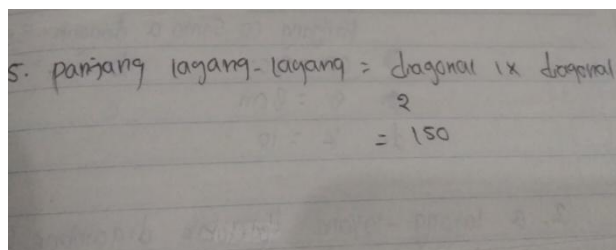 5. panjang layang-layang = diagonal 1x diagonal
2
= 150